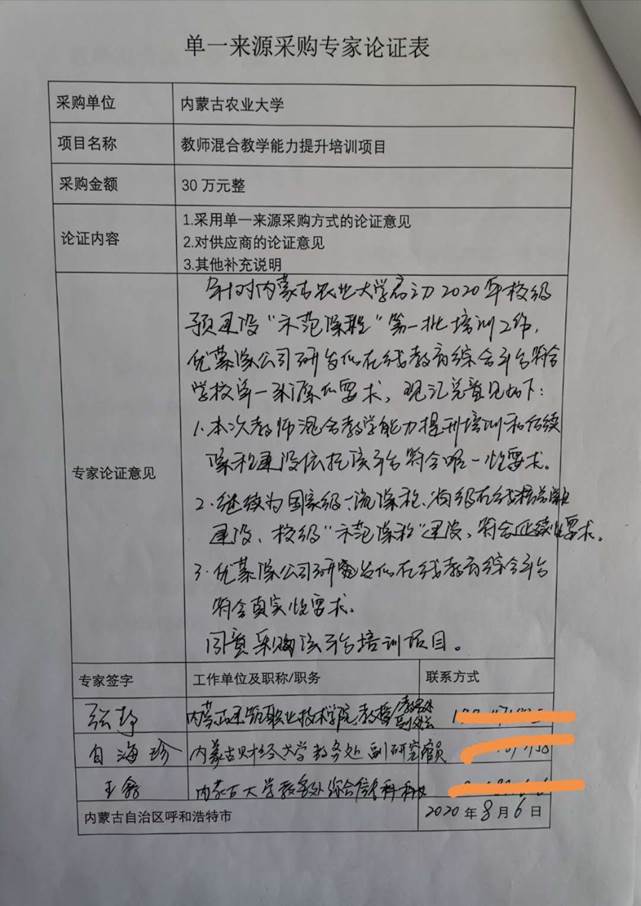 单一来源采购专家论证表
采购单位 内蒙古农业大学
项目名称 教师混合教学能力提升培训项目
采购金额 30 万元整
论证内容
1.采用单一来源采购方式的论证意见
2.对供应商的论证意见
3.其他补充说明
专家论证意见
针对内蒙古农业大学启动2020年校级
预建设“示范课程”第一批培训工作,
优慕课公司研发的在线教育综合平台符合
学校单一来源的要求, 现汇总意见如下:
1.本次教师混合教学能力提升培训和后续
课程建设依托该平台符合唯一性要求。
2.继续为国家级一流课程、省级在线精品课
建设、校级“示范课程”建设,符合延续性要求。
3.优慕课公司研发的在线教育综合平台
符合真实性要求。
同意采购该平台培训项目。
专家签字 工作单位及职称/职务 联系方式
张静 内蒙古 职业技术学院教授
白海珍 内蒙古财经大学教务处 副研究员
王鑫 内蒙古大学教务处综合 科科
内蒙古自治区呼和浩特市 2020 年 8 月 6 日